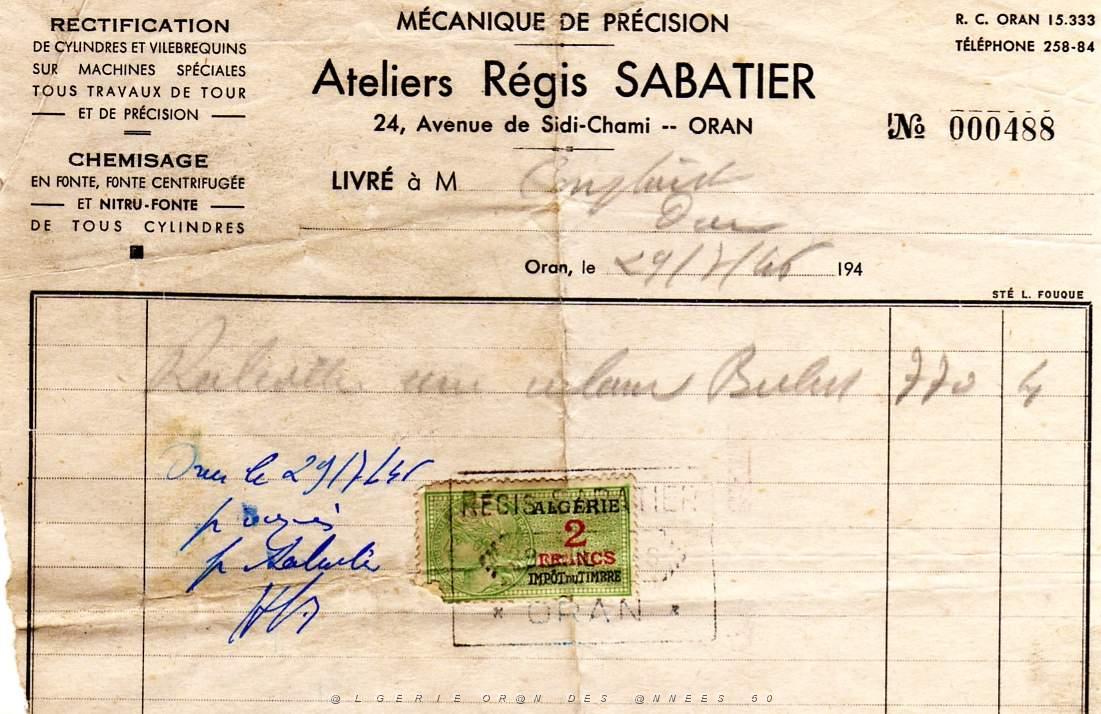 RECTIFICATION
DE CYLINDRES ET VILEBREQUINS
SUR MACHINES SPÉCIALES
TOUS TRAVAUX DE TOUR
ET DE PRÉCISION
CHEMISAGE
EN FONTE, FONTE CENTRIFUGÉE
ET NITRU-FONTE
DE TOUS CYLINDRES
MÉCANIQUE DE PRÉCISION
Ateliers Régis SABATIER
24, Avenue de Sidi-Chami -- ORAN
R. C. ORAN 15.333
TÉLÉPHONE 258-84
No 000488
LIVRÉ à M
Oran
Oran, le 29/7/46 194
STÉ L. FOUQUE
une 770
Oran le 29/7/46
p acquis
p Sabatier
RÉGIS SABATIER
ALGÉRIE
2
FRANCS
IMPÔT DU TIMBRE
* ORAN *
@LGERIE OR@N DES @NNEES 50